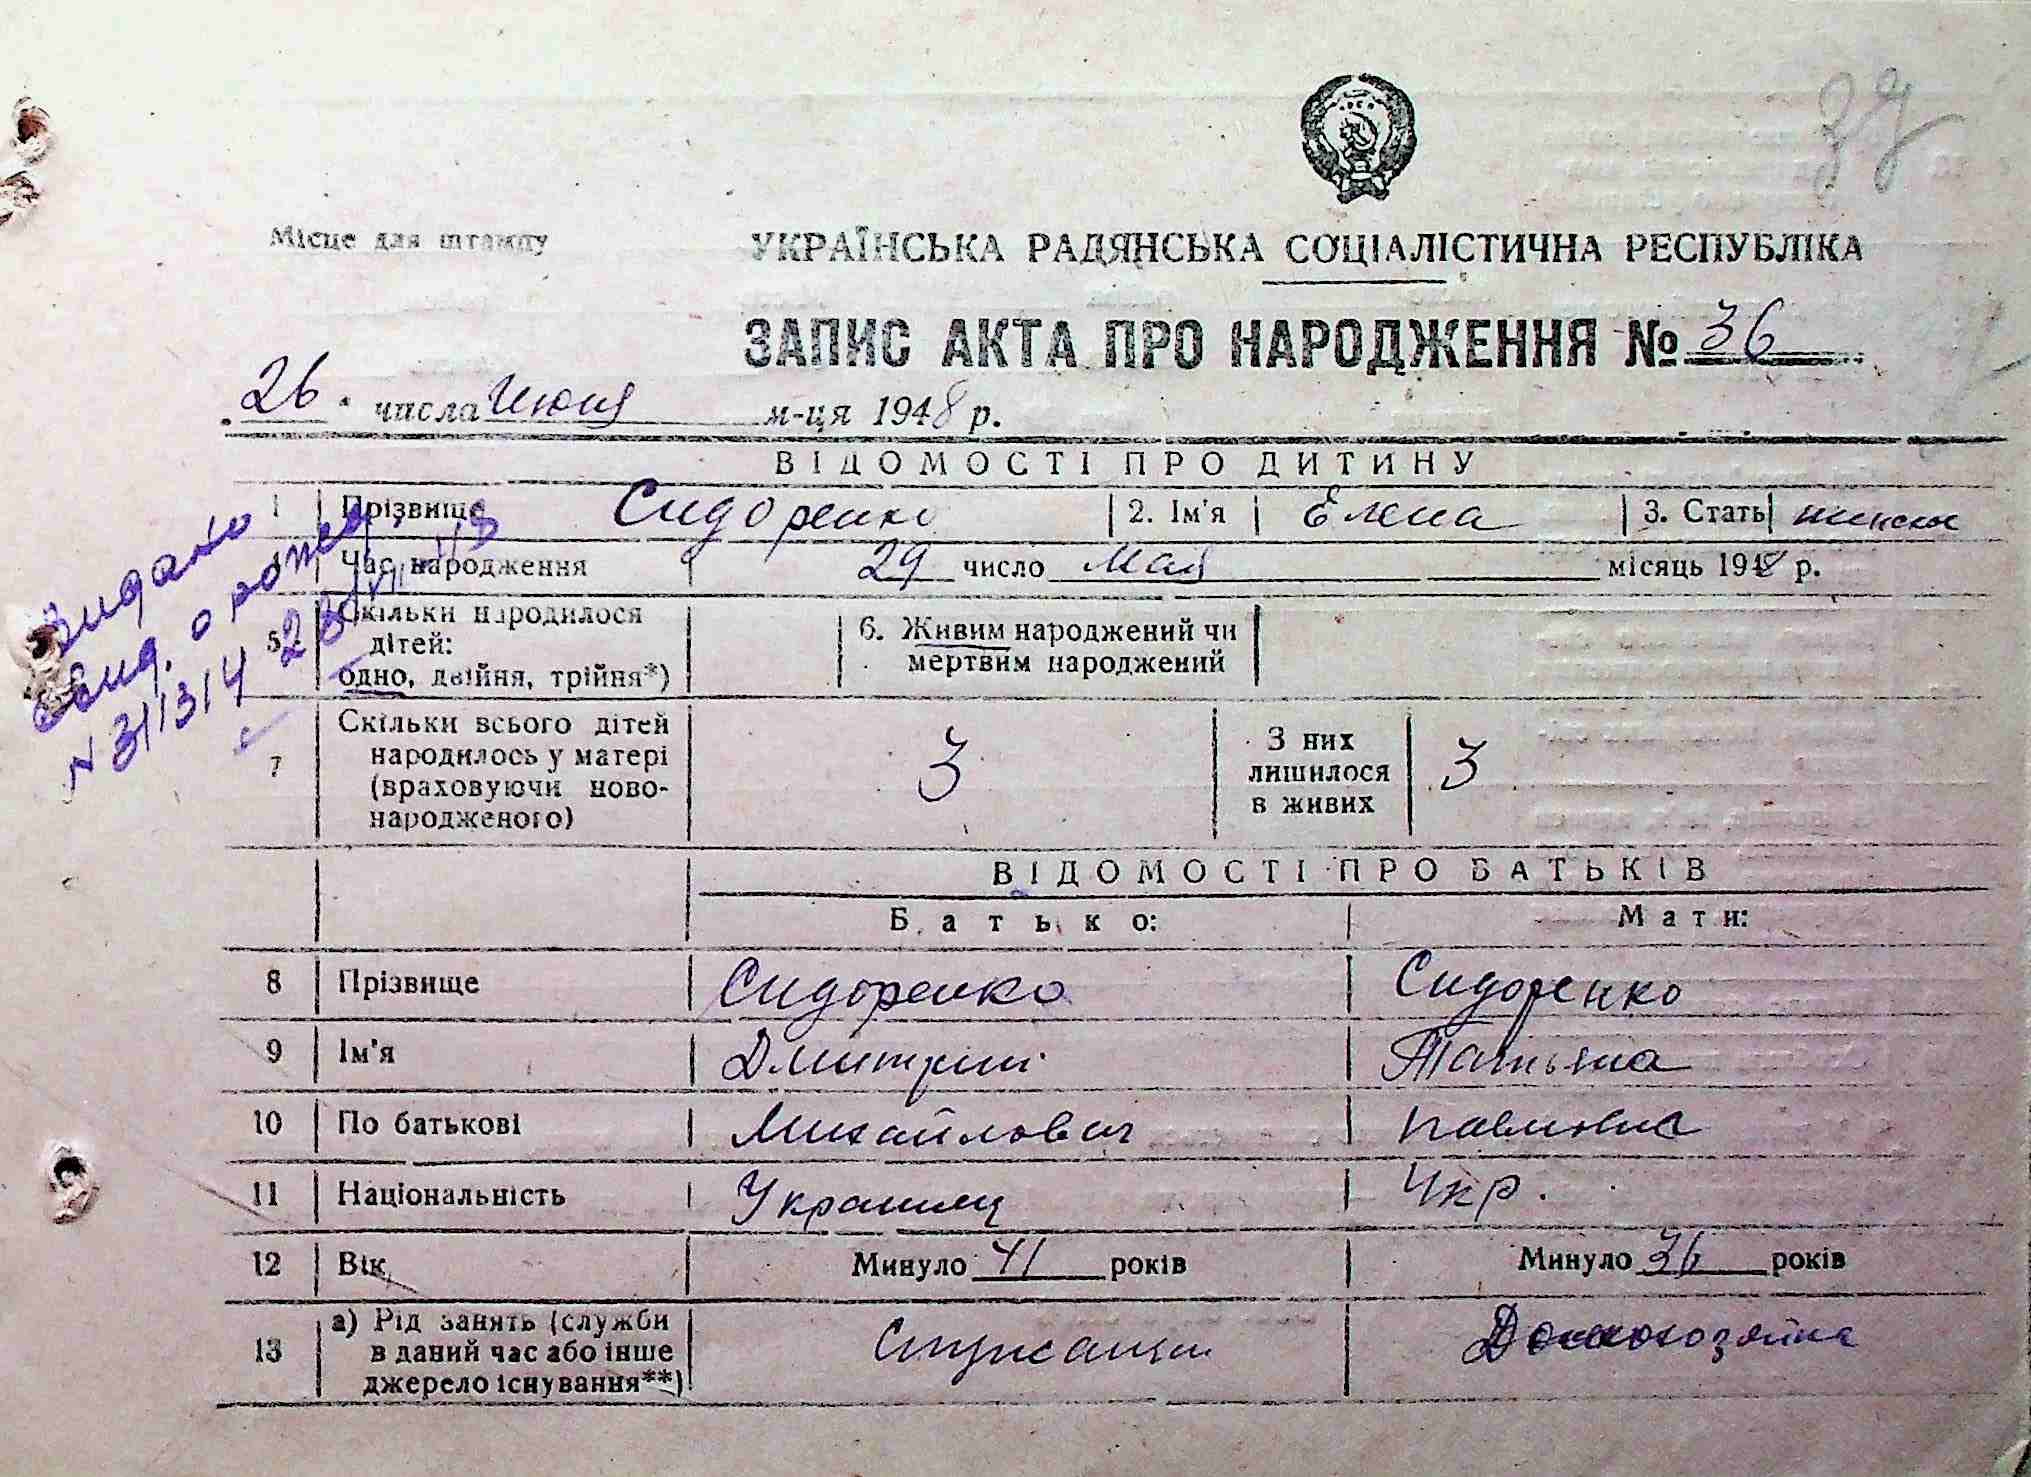 37
Місце для штампу
УКРАЇНСЬКА РАДЯНСЬКА СОЦІАЛІСТИЧНА РЕСПУБЛІКА
ЗАПИС АКТА ПРО НАРОДЖЕННЯ № 36
„26" числа Июня м-ця 1948 р.
ВІДОМОСТІ ПРО ДИТИНУ
1 Прізвище Сидоренко 2. Ім'я Елена 3. Стать женская
Час народження 29 число Мая місяць 1948 р.
5 Скільки народилося дітей: одно, двійня, трійня*)
6. Живим народжений чи мертвим народжений
7 Скільки всього дітей народилось у матері (враховуючи ново-народженого) 3 З них лишилося в живих 3
Видано
свид. о рожд.
N 311314 28
ВІДОМОСТІ ПРО БАТЬКІВ
Батько: Мати:
8 Прізвище Сидоренко Сидоренко
9 Ім'я Дмитрий Татьяна
10 По батькові Михайлович Павловна
11 Національність Украинец Укр.
12 Вік Минуло 41 років Минуло 36 років
13 а) Рід занять (служби в даний час або інше джерело існування**) Служащий Домохозяйка